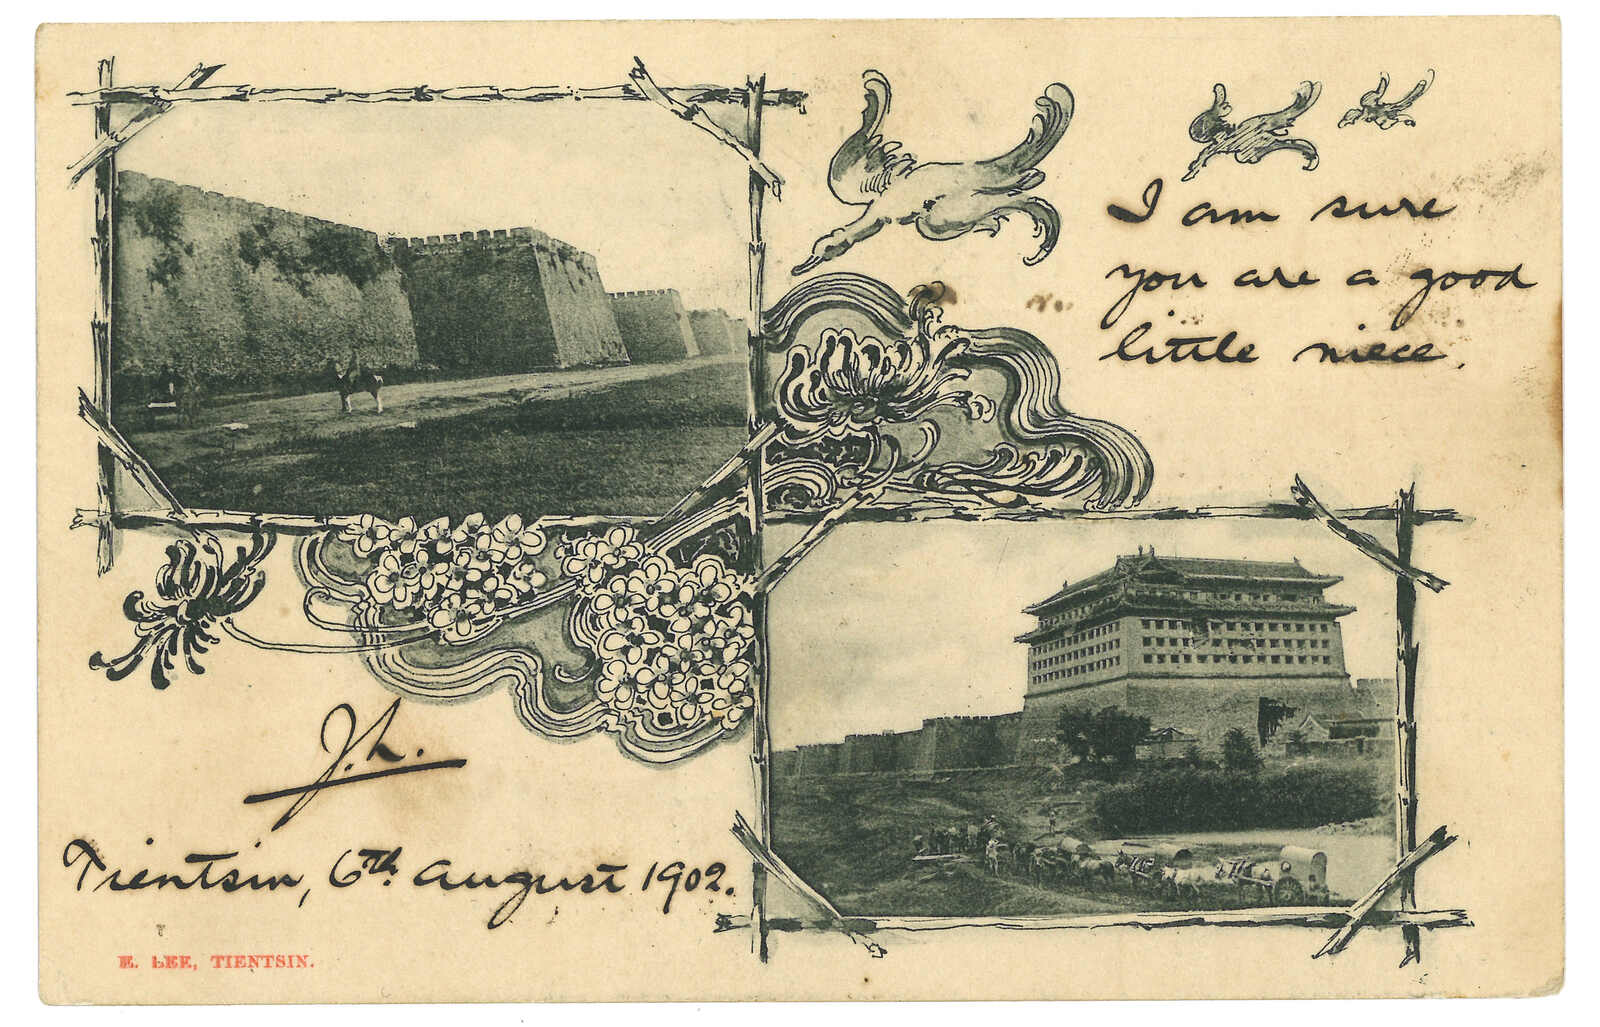 I am sure
you are a good
little niece.
J.L.
Tientsin, 6th August 1902.
E. LEE, TIENTSIN.